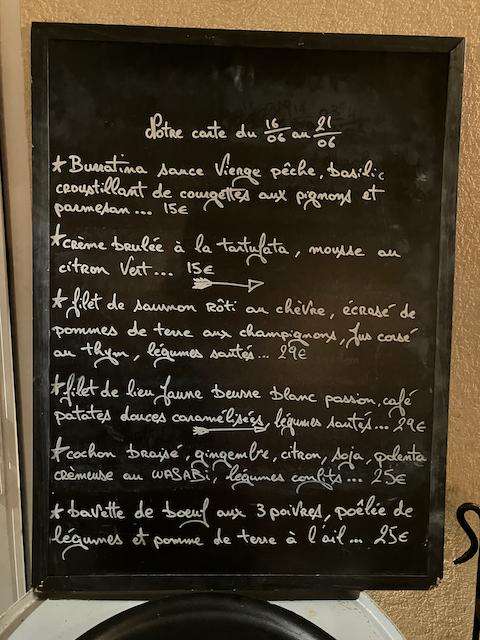 Notre carte du 16/06 au 21/06
* Burratina sauce Vierge pêche, basilic
croustillant de courgettes aux pignons et
parmesan... 15€
* crème brulée à la tartufata, mousse au
citron Vert... 15€
* filet de saumon Rôti au chèvre, écrasé de
pommes de terre aux champignons, Jus corsé
au thym, légumes sautés... 29€
* filet de lieu Jaune beurre blanc passion, café
patates douces caramélisées, légumes sautés... 29€
* cochon braisé, gingembre, citron, soja, polenta
crèmeuse au WASABi, légumes confits... 25€
* bavette de boeuf aux 3 poivres, poêlée de
légumes et pomme de terre à l'ail... 25€